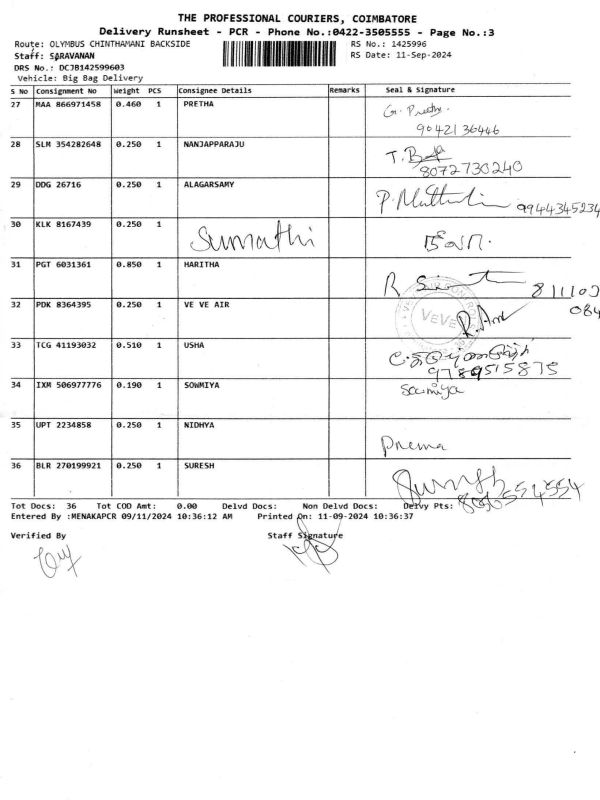 THE PROFESSIONAL COURIERS, COIMBATORE
Delivery Runsheet - PCR - Phone No.:0422-3505555 - Page No.:3
Route: OLYMBUS CHINTHAMANI BACKSIDE RS No.: 1425996
Staff: SARAVANAN RS Date: 11-Sep-2024
DRS No.: DCJB142599603
Vehicle: Big Bag Delivery
S No Consignment No Weight PCS Consignee Details Remarks Seal & Signature
27 MAA 866971458 0.460 1 PRETHA G. Preetha.
9042136446
28 SLM 354282648 0.250 1 NANJAPPARAJU
8072730240
29 DDG 26716 0.250 1 ALAGARSAMY 9944345234
30 KLK 8167439 0.250 1 Sumathi
31 PGT 6031361 0.850 1 HARITHA
32 PDK 8364395 0.250 1 VE VE AIR VEVE
33 TCG 41193032 0.510 1 USHA
9789515875
34 IXM 506977776 0.190 1 SOWMIYA Sowmiya
35 UPT 2234858 0.250 1 NIDHYA Prema
36 BLR 270199921 0.250 1 SURESH
Tot Docs: 36 Tot COD Amt: 0.00 Delvd Docs: Non Delvd Docs: Delvy Pts:
Entered By :MENAKAPCR 09/11/2024 10:36:12 AM Printed On: 11-09-2024 10:36:37
Verified By Staff Signature